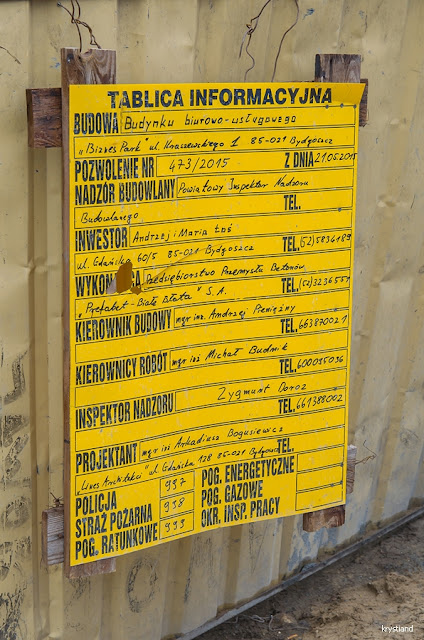 TABLICA INFORMACYJNA
BUDOWA Budynku biurowo-usługowego
„Biznes Park" ul. Kraszewskiego 1 85-021 Bydgoszcz
POZWOLENIE NR 473/2015 Z DNIA 21.05.2015
NADZÓR BUDOWLANY Powiatowy Inspektor Nadzoru
Budowlanego TEL.
INWESTOR Andrzej i Maria Łoś
ul. Gdańska 60/5 85-021 Bydgoszcz TEL. (52)5834189
Przedsiębiorstwo Przemysłu Betonów
„Prefabet-Białe Błota" S.A. TEL. (52)3236557
KIEROWNIK BUDOWY mgr inż. Andrzej Pieniężny
TEL. 663870021
KIEROWNICY ROBÓT mgr inż Michał Budnik
TEL. 600035036
INSPEKTOR NADZORU Zygmunt Doroz
TEL. 661388002
PROJEKTANT mgr inż. Arkadiusz Bogusiewicz
ul. Gdańska 128 85-021 TEL.
POLICJA 997 POG. ENERGETYCZNE
STRAŻ POŻARNA 998 POG. GAZOWE
POG. RATUNKOWE 999 OKR. INSP. PRACY
krystiand